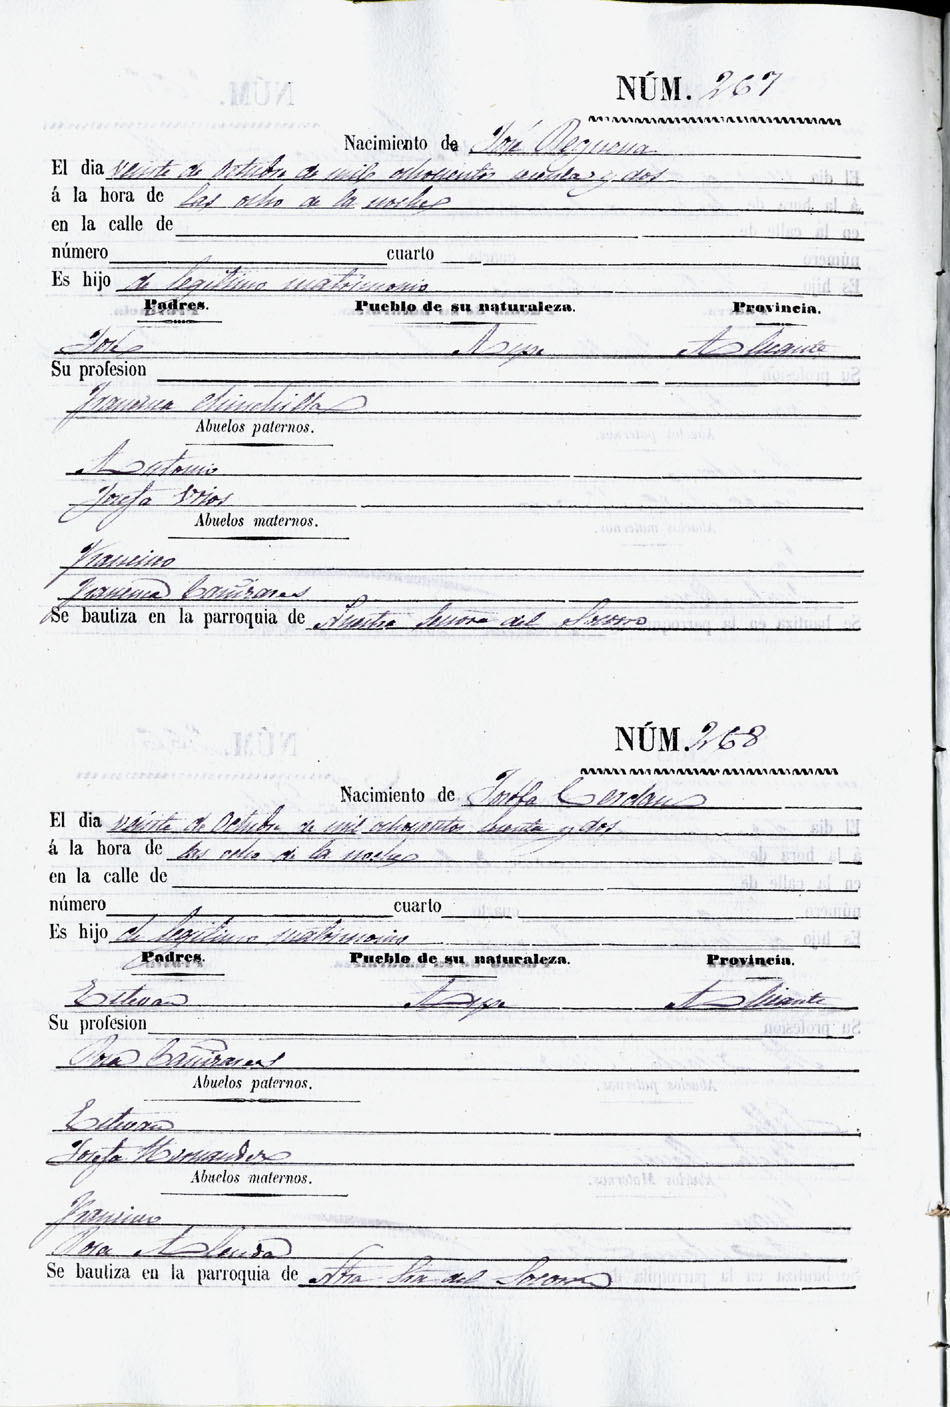 NÚM. 267
Nacimiento de José Requena
El dia veinte de Octubre de mil ochocientos sesenta y dos
á la hora de las ocho de la noche
en la calle de
número cuarto
Es hijo de legitimo matrimonio
Padres. Pueblo de su naturaleza. Provincia.
José Aspe Alicante
Su profesion
Francisca Chinchilla
Abuelos paternos.
Antonio
Josefa Rios
Abuelos maternos.
Francisco
Francisca Cañizares
Se bautiza en la parroquia de Nuestra Señora del Socorro
NÚM. 268
Nacimiento de Josefa Cerdan
El dia veinte de Octubre de mil ochocientos sesenta y dos
á la hora de las ocho de la noche
en la calle de
número cuarto
Es hijo de legitimo matrimonio
Padres. Pueblo de su naturaleza. Provincia.
Estevan Aspe Alicante
Su profesion
Rosa Cañizares
Abuelos paternos.
Estevan
Josefa Hernandez
Abuelos maternos.
Francisco
Rosa Almoda
Se bautiza en la parroquia de Ntra Sra del Socorro